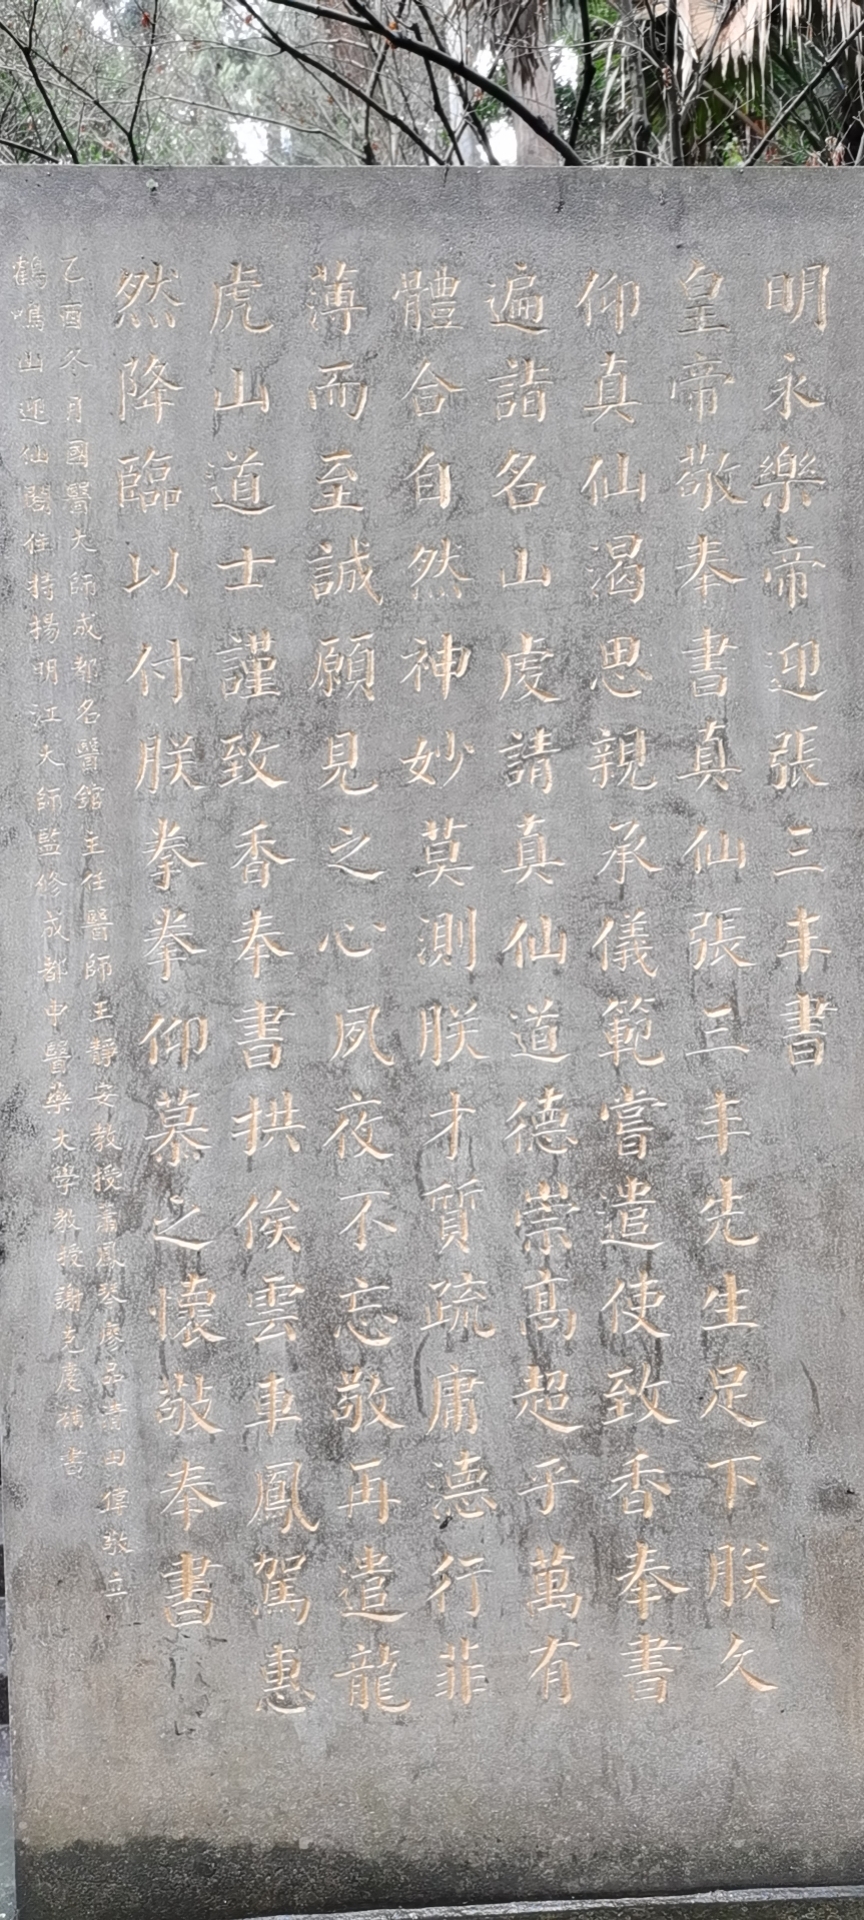 明永樂帝迎張三丰書
皇帝敬奉書真仙張三丰先生足下朕久
仰真仙渴思親承儀範嘗遣使致香奉書
遍詣名山虔請真仙道德崇高超乎萬有
體合自然神妙莫測朕才質疏庸德行菲
薄而至誠願見之心夙夜不忘敬再遣龍
虎山道士謹致香奉書拱俟雲車鳳駕惠
然降臨以付朕拳拳仰慕之懷敬奉書
乙酉冬月國醫大師成都名醫館主任醫師王靜安教授蕭風琴廖品薈田偉敬立
鶴鳴山迎仙閣住持揚明江大師監修成都中醫藥大學教授謝克慶補書